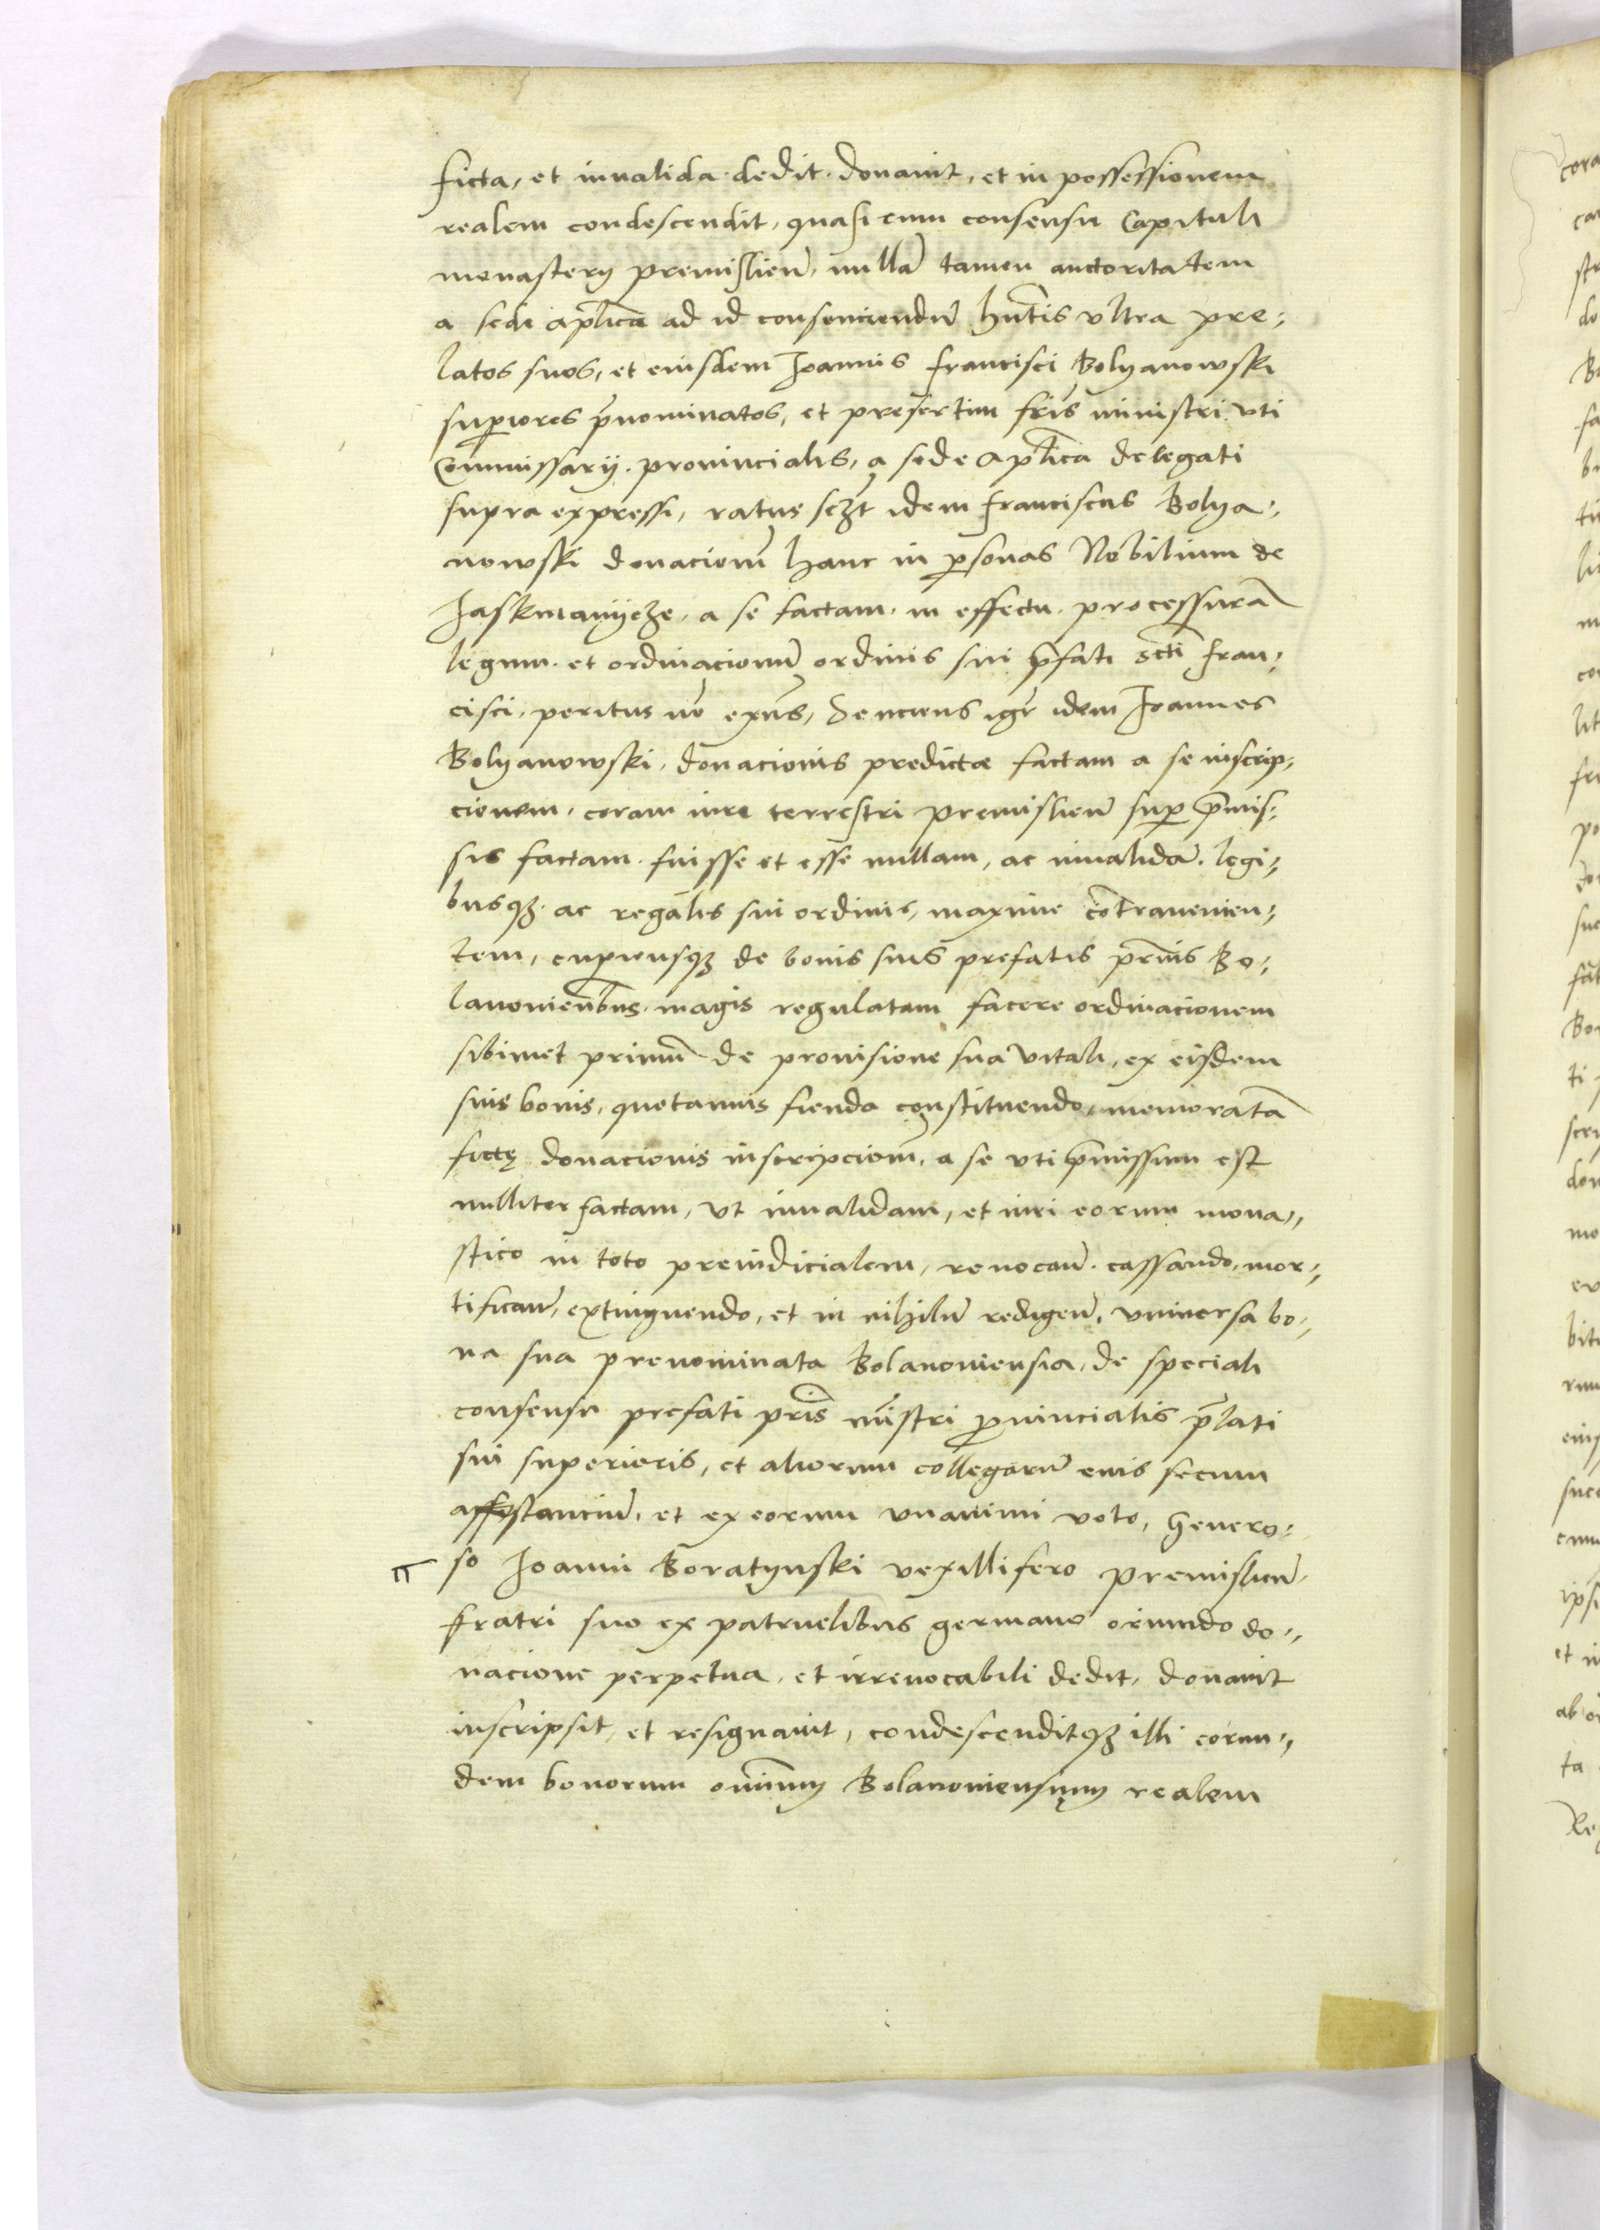 ficta, et inualida dedit donauit, et in possessionem
realem condescendit, quasi cum consensu Capituli
monastery premisslien̄, nullā tamen auctoritatem
a sede aplica ad id consenciendū hn̄tis vltra pre,
latos suos, et eiusdem Joannis francisci Bolyanowski
superiores pr̄nominatos, et presertim fris ministri vti
Commissarij prouincialis, a sede aplica delegati
supra expressi, ratus sczt idem franciscus Bolya,
nowski donacionem̄ hanc in personas Nobilium de
Jaskmanijcze, a se factam in effectu processurā
legum et ordinacionū ordinis sui pr̄fati scti fran,
cisci, peritus nō exn̄s, Senciens igr idem Joannes
Bolyanowski, donacionis predictæ factam a se inscrip,
cionem, coram iure terrestri premislien̄ super pr̄mis,
sis factam fuisse et esse nullam, ac inualidā legi,
busqz ac regulis sui ordinis, maxime cōtrauenien,
tem, cupiensqz de bonis suis prefatis prn̄is Bo,
lanoniensibus magis regulatam facere ordinacionem
sibimet primū de prouisione sua vitali, ex eisdem
suis bonis, quotannis fienda constituendo, memoratā
fictę donacionis inscripcionem̄, a se vti pr̄missum est
nulliter factam, vt inualidam, et iuri eorum mona,
stico in toto preiudicialem, reuocan̄ cassando, mor,
tifican̄, extinguendo, et in nihilū redigen̄, vniuersa bo,
na sua prenominata Bolanoniensia, de speciali
consensu prefati pris mn̄istri prouincialis pr̄lati
sui superioris, et aliorum collegarū eius secum
assistanciū, et ex eorum vnanimi voto, Genero,
so Joanni Boratynski vexillifero premislien̄
fratri suo ex patruelibus germano oriundo do,
nacione perpetua, et irreuocabili dedit, donauit
inscripsit, et resignauit, condescenditqz illi eorun,
dem bonorum omnium Bolanoniensium realem